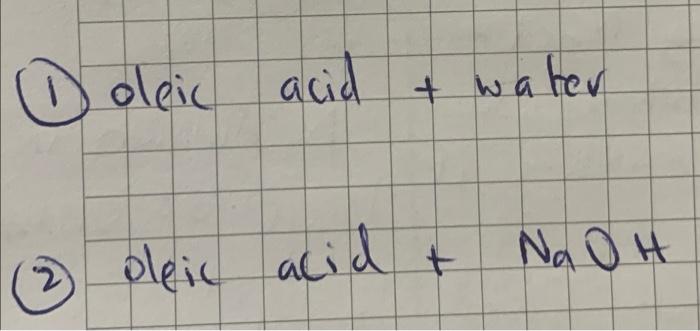 ① oleic acid + water
② oleic acid + NaOH